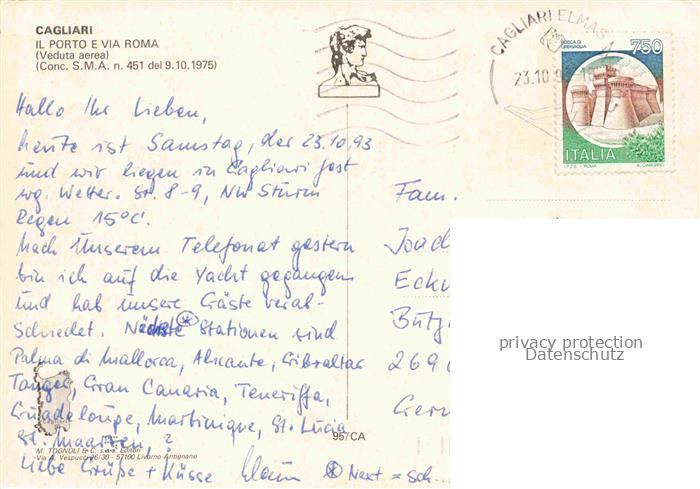 CAGLIARI
IL PORTO E VIA ROMA
(Veduta aerea)
(Conc. S.M.A. n. 451 del 9.10.1975)
CAGLIARI ELMAS
23.10.9
ROCCA DI
URBISAGLIA
750
ITALIA
I.P.Z.S. - ROMA
Hallo Ihr Lieben,
heute ist Samstag, der 23.10.93
und wir liegen in Cagliari fest
wg. Wetter. St. 8-9, NW Sturm
Regen 15°C.
Nach Unserem Telefonat gestern
bin ich auf die Yacht gegangen
und hab unsere Gäste verab-
schiedet. Nächste Stationen sind
Palma di Mallorca, Alicante, Gibraltar
Tanger, Gran Canaria, Teneriffa,
Guadeloupe, Martinique, St. Lucia
St. Maarten, ?
Liebe Grüße + Küsse
* Next = sch...
Fam.
Joach
Eck
Bütz
269
Ger
privacy protection
Datenschutz
Cagliari
95/CA
M. TOGNOLI & C. s.a.s. Editori
Via A. Vespucci 26/30 - 57100 Livorno Antignano